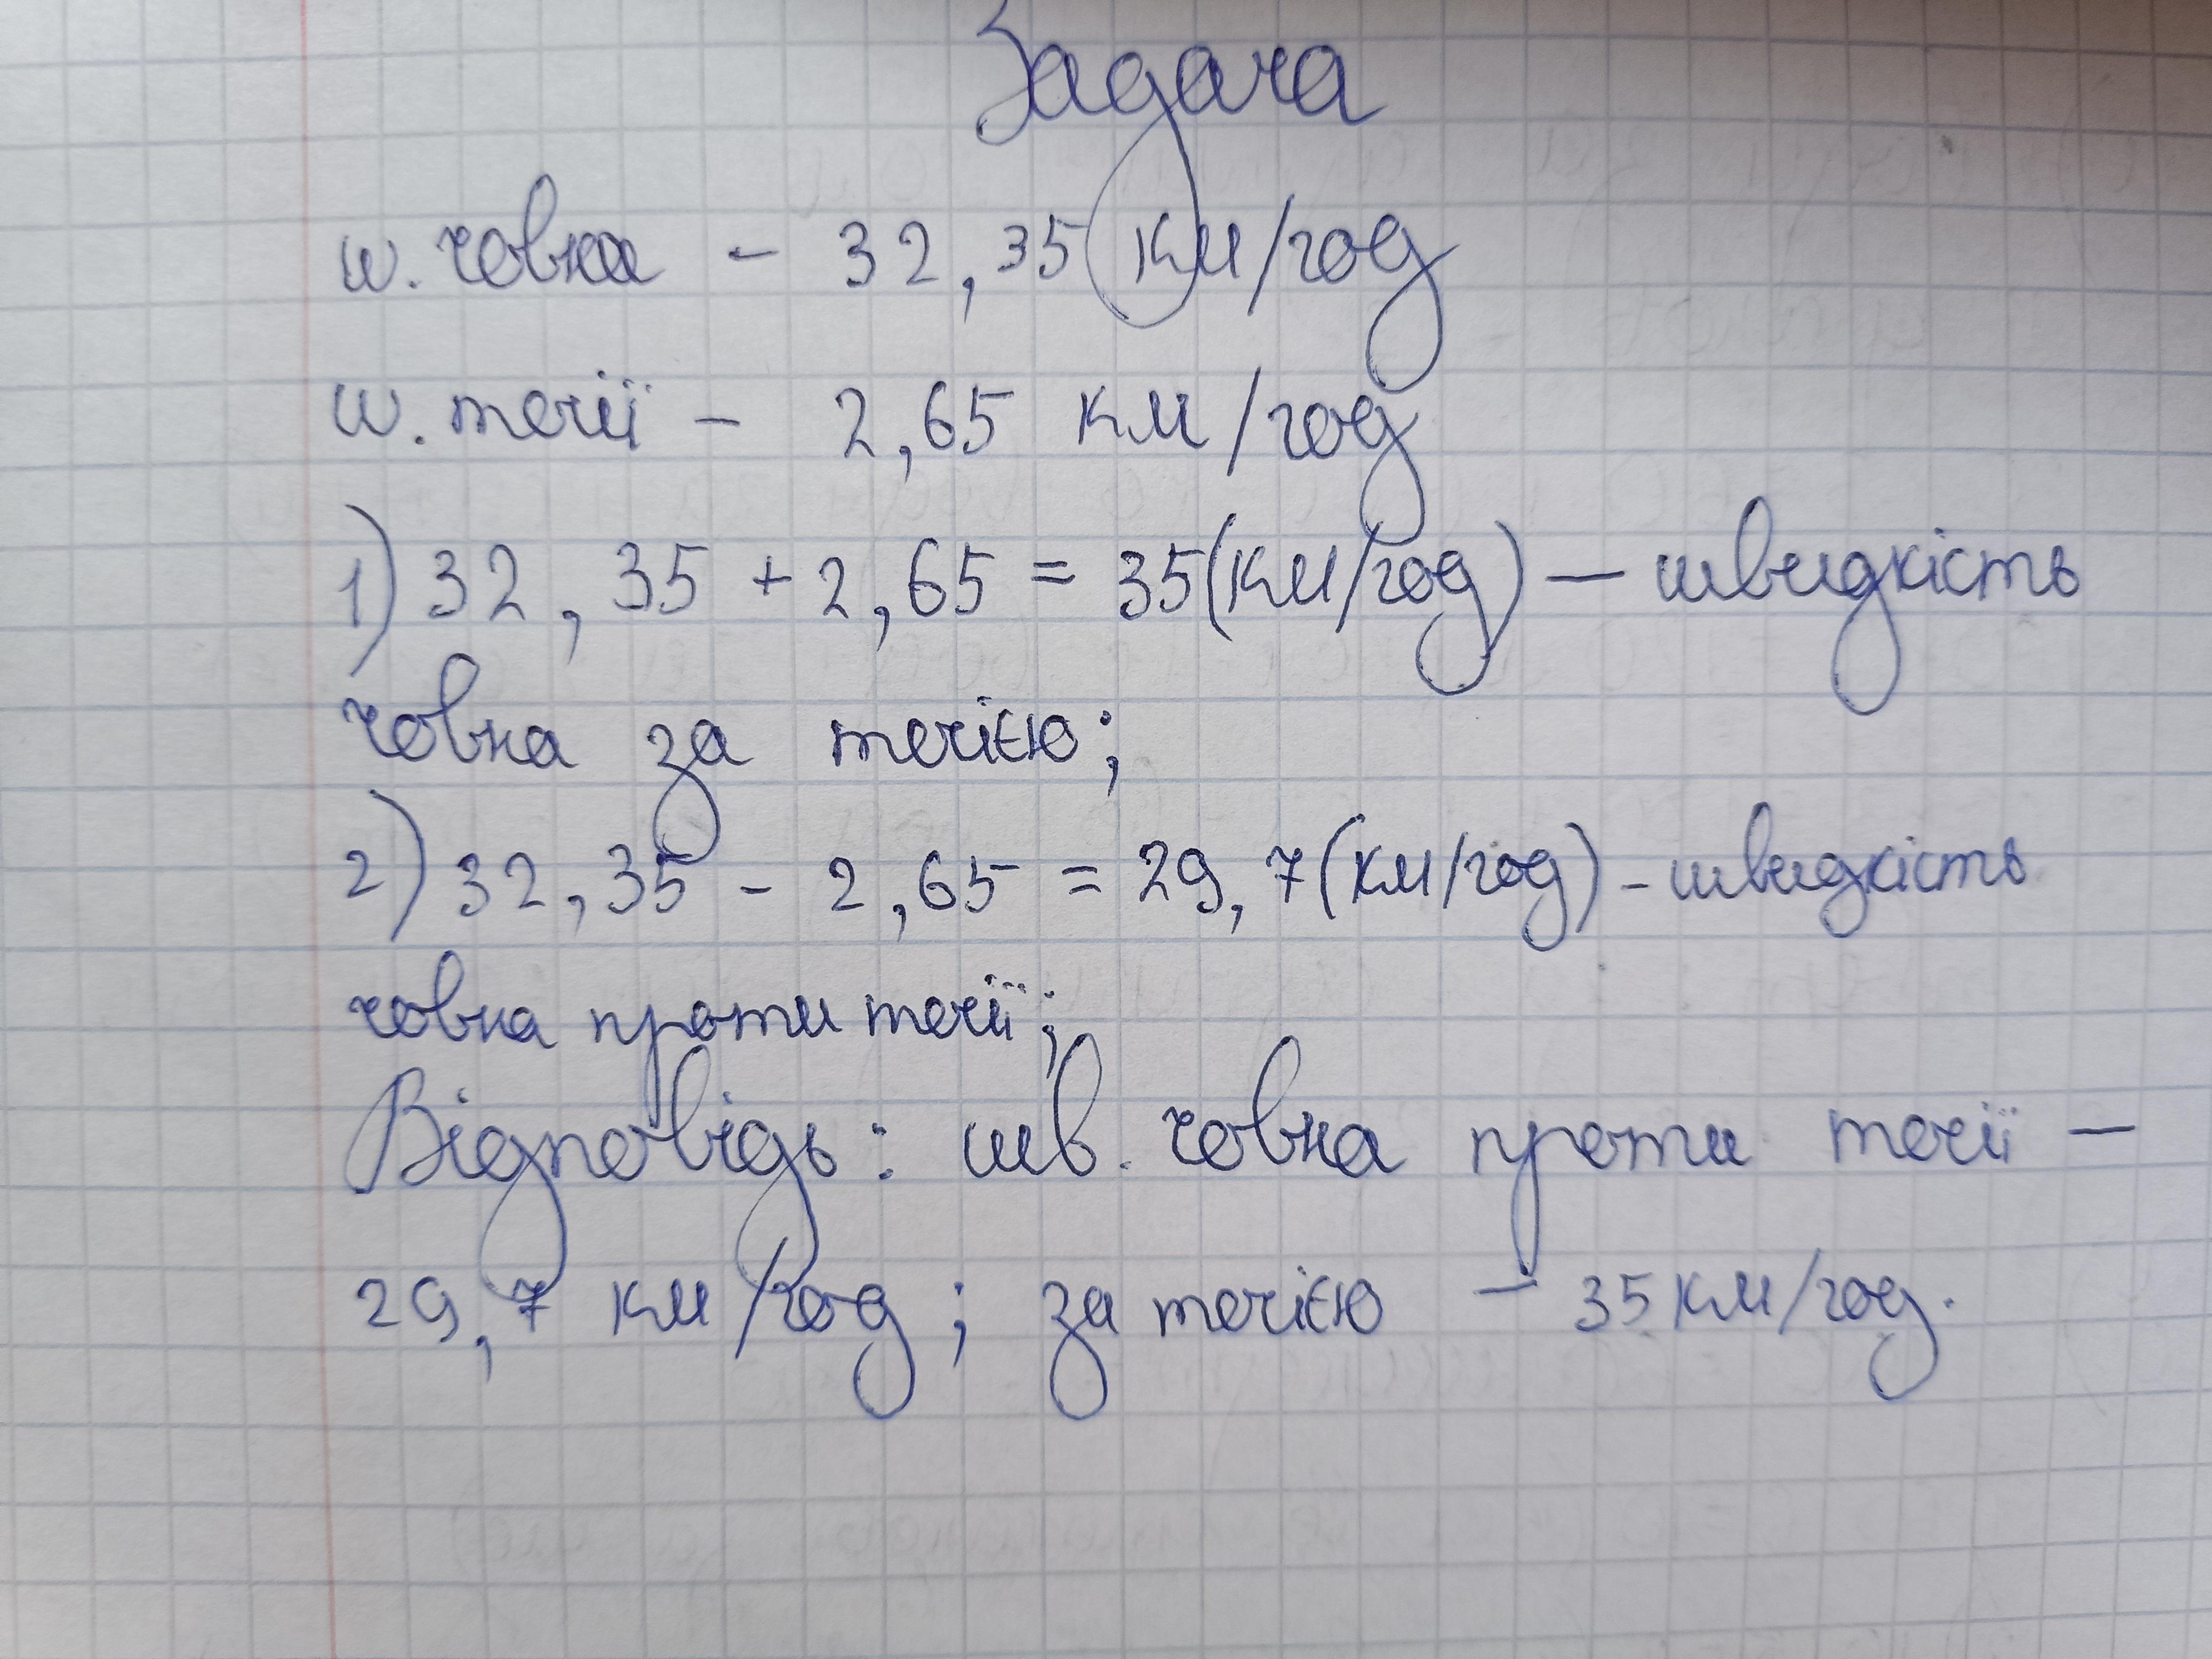 Задача
ш. човна - 32,35 км/год
ш. течії - 2,65 км/год
1) 32,35 + 2,65 = 35(км/год) — швидкість
човна за течією;
2) 32,35 - 2,65 = 29,7(км/год) - швидкість
човна проти течії;
Відповідь: шв. човна проти течії —
29,7 км/год; за течією - 35 км/год.